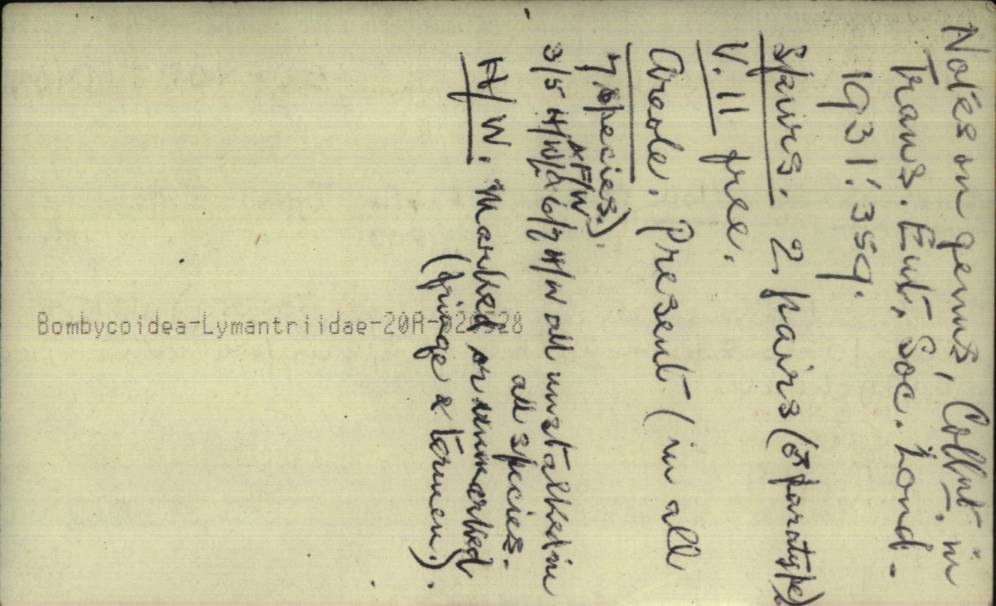 Notes on genus, Collnt. in
Trans. Ent. Soc. Lond.
1931: 359.
Spurs. 2 pairs (♂ paratype)
V. 11 free.
Areole. Present (in all
7 species).
& F/W
3/5 H/W & 6/7 H/W all unstalked in
all species.
H/W. Marked or unmarked
(fringe & termen).
Bombycoidea-Lymantriidae-20A-